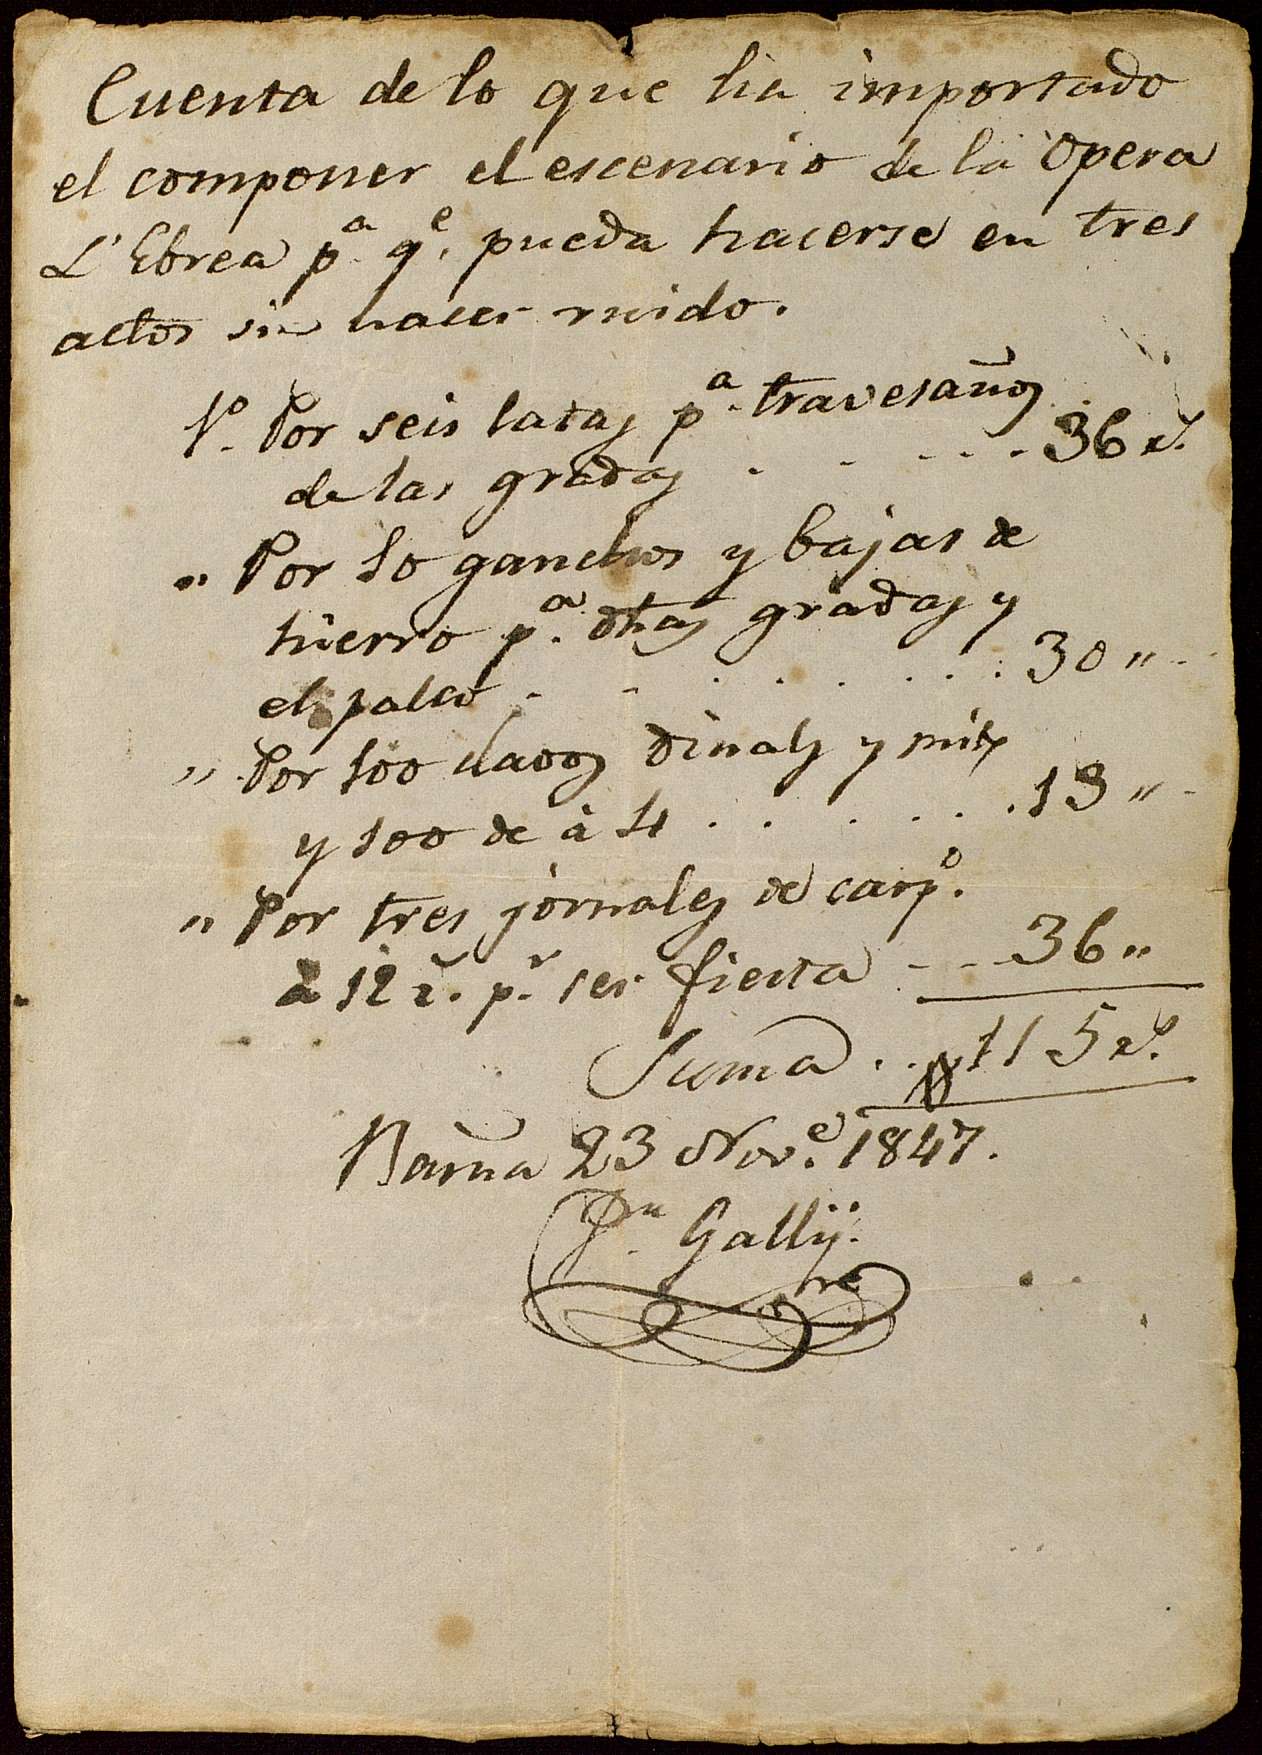 Cuenta de lo que ha importado
el componer el escenario de la Opera
L'Ebrea pª. qe. pueda hacerse en tres
actos sin hacer ruido.
1º. Por seis latas pª. travesaños
de las gradas . . . . . 36 rs.
" Por 10 ganchos y bajas de
hierro pª. dhas gradas y
el palco . . . . . . . . 30 "
" Por 100 clavos dinals y mitx
y 100 de á 4 . . . . . . 13 "
" Por tres jornales de carpº.
á 12 rs. pr. ser fiesta . . . 36 "
Suma . . 115 rs.
Barna 23 Nove. 1847.
Jn. Gallij.